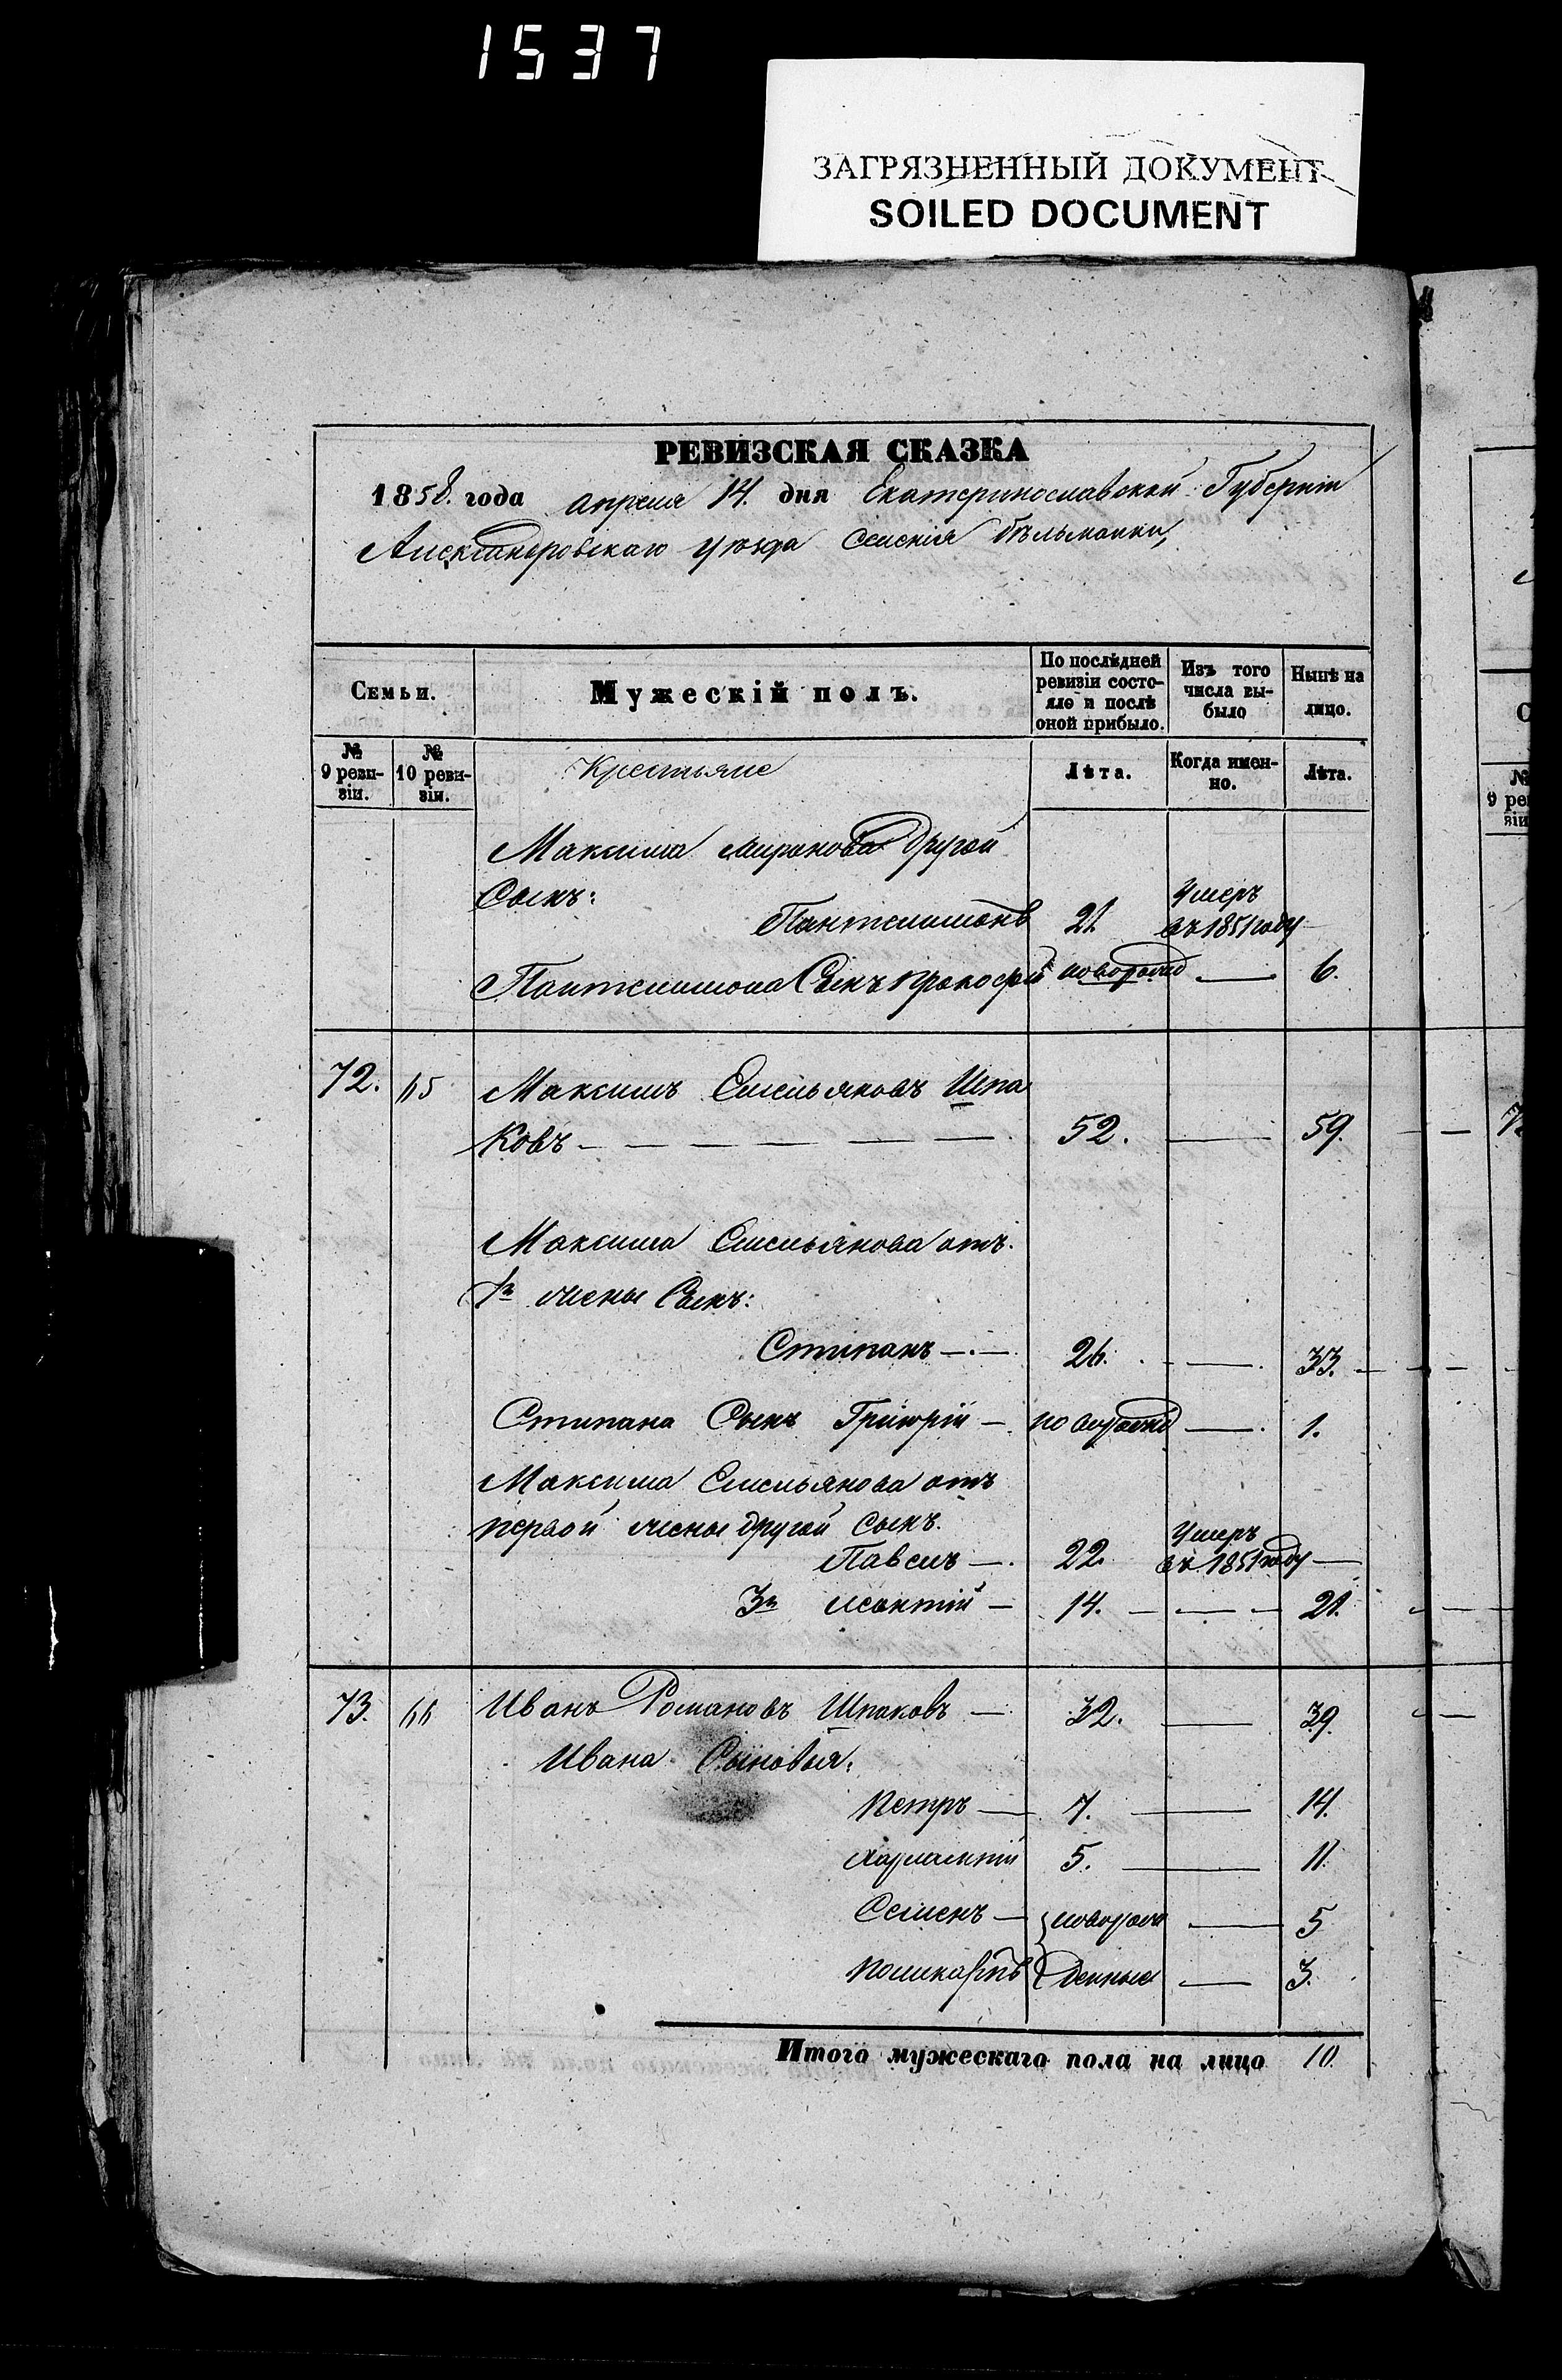 1537
ЗАГРЯЗНЕННЫЙ ДОКУМЕНТ
SOILED DOCUMENT
РЕВИЗСКАЯ СКАЗКА
1858. года апреля 14. дня Екатеринославской Губернiи
Александровскаго уѣзда Селенiя Бѣльманки,
Семьи.
Мужескiй полъ.
По послѣдней ревизiи состояло и послѣ оной прибыло.
Изъ того числа выбыло
Нынѣ на лицо.
№ 9 ревизiи.
№ 10 ревизiи.
Крестьяне
Лѣта.
Когда именно.
Лѣта.
Максима Миронова другой
Сынъ:
Пантелимонъ 21. Умеръ въ 1851 году —
Пантелимона Сынъ Прокофiй новорожд — 6.
72. 65 Максимъ Емельяновъ Шпа
ковъ — — — — — — — 52. — 59.
Максима Емельянова отъ
1й жены Сынъ:
Степанъ — . — 26. — 33.
Степана Сынъ Григорiй — новорожд — 1.
Максима Емельянова отъ
первой жены другой сынъ.
Павелъ — . 22. Умеръ въ 1851 году —
3й Леонтiй — 14. — — — 21.
73. 66 Иванъ Романовъ Шпаковъ — 32. — 39.
Ивана Сыновья:
Петръ — 7. — 14.
Харлампiй 5. — 11.
Семенъ — новорож — 5
Поликарпъ денные — 3.
Итого мужескаго пола на лицо 10.
№
9 ре
зiи